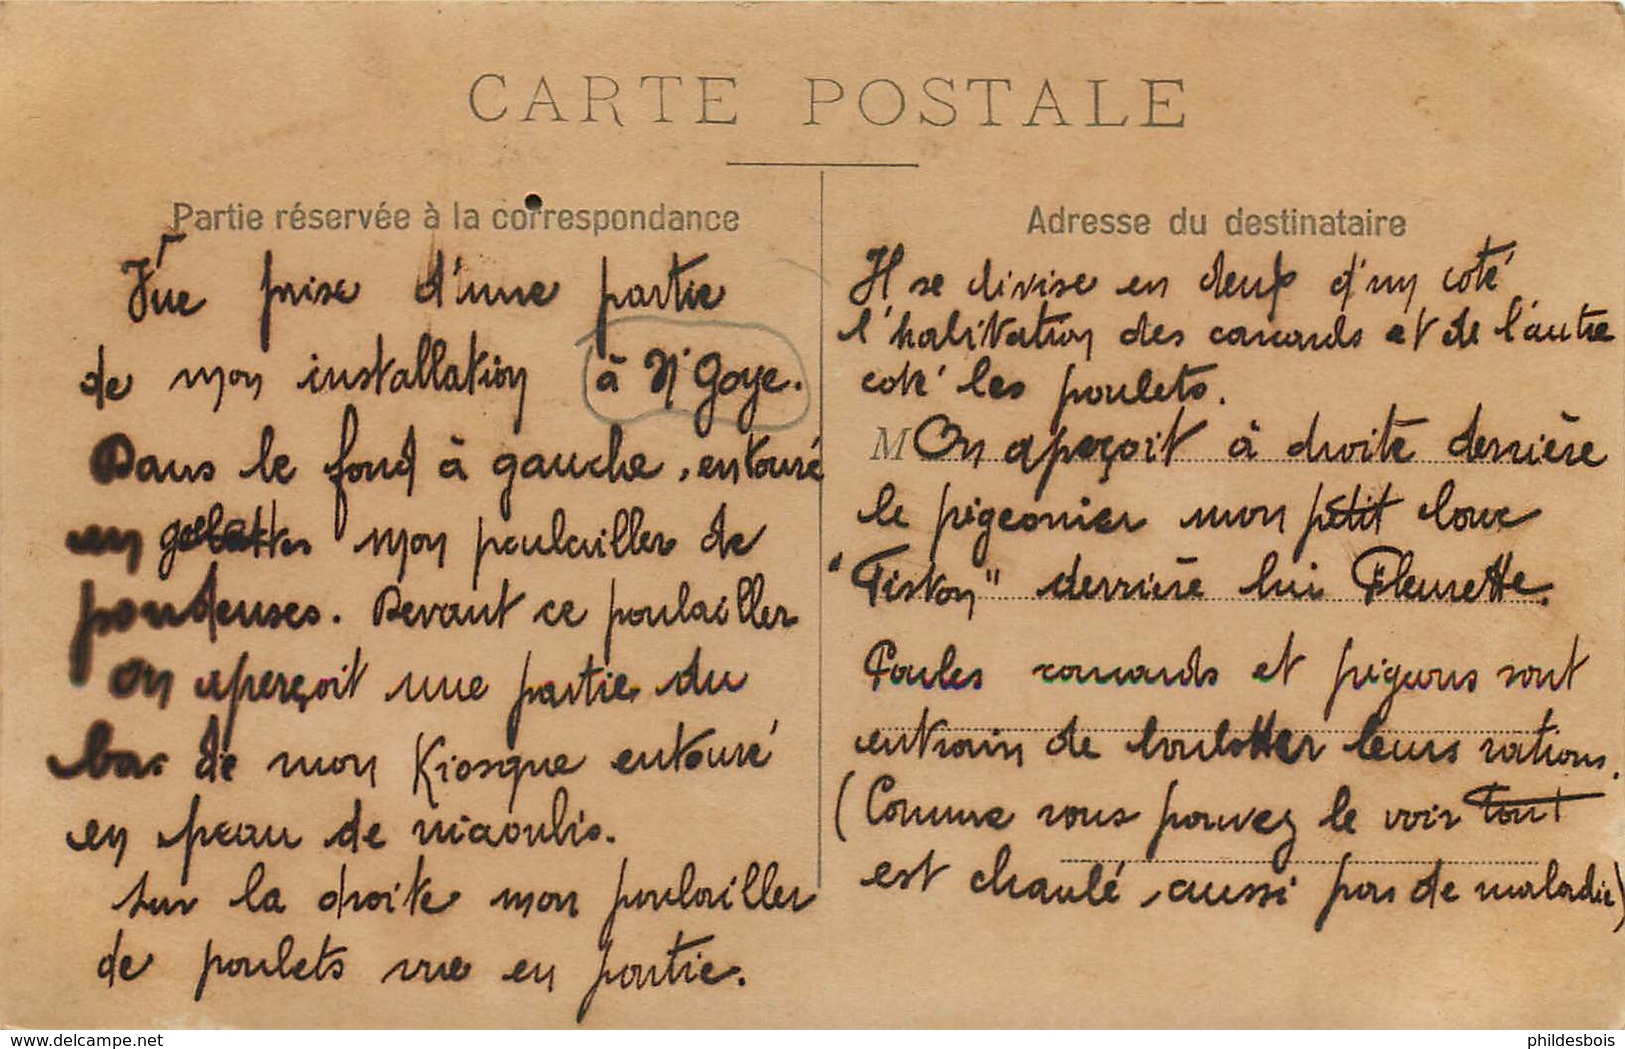 CARTE POSTALE
Partie réservée à la correspondance
Vue prise d'une partie
de mon installation à N'Goye.
Dans le fond à gauche, entouré
en gaulettes mon poulailler de
pondeuses. Devant ce poulailler
on aperçoit une partie du
bas de mon Kiosque entouré
en peau de niaoulis.
Sur la droite mon poulailler
de poulets vue en partie.
Adresse du destinataire
Il se divise en deux d'un coté
l'habitation des canards et de l'autre
coté les poulets.
M On aperçoit à droite derrière
le pigeonier mon petit
"Fiston" derrière lui Fleurette.
Poules canards et pigeons sont
entrain de boulotter leurs rations.
(Comme vous pouvez le voir tout
est chaulé, aussi pas de maladie)
www.delcampe.net
phildesbois